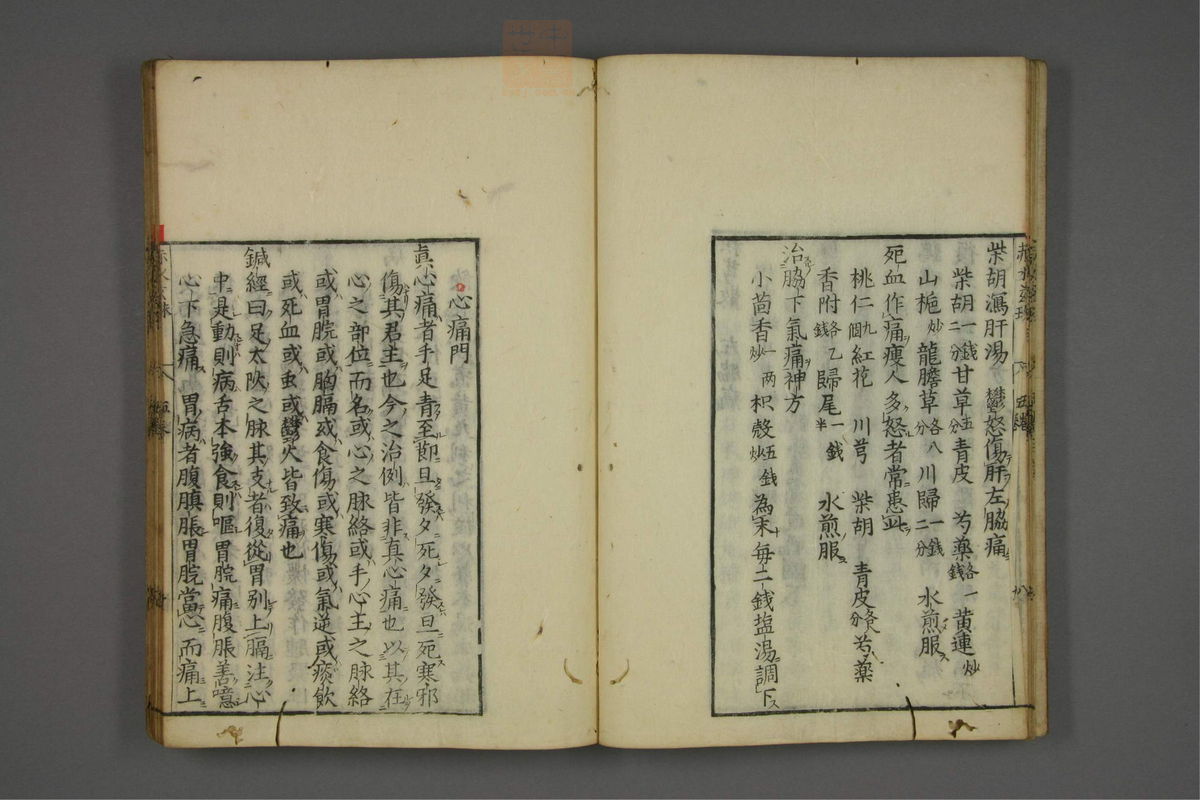 柴胡瀉肝湯 鬱怒傷肝左脇痛
柴胡一錢二分甘草五分青皮 芍藥各一錢 黄連炒
山梔炒 龍膽草各八分 川歸一錢二分 水煎服
死血作痛瘦人多怒者常患此
桃仁九個 紅花 川芎 柴胡 青皮各八分 芍藥
香附各乙錢 歸尾一錢半 水煎服
治脇下氣痛神方
小茴香一两炒 枳殼五錢炒 為末每二錢塩湯調下
心痛門
真心痛者手足青至節旦發夕死夕發旦死寒邪
傷其君主也今之治例皆非真心痛也以其在
心之部位而名或心之脉絡或手心主之脉絡
或胃脘或胸膈或食傷或寒傷或氣逆或痰飲
或死血或虫或鬱火皆致痛也
鍼經曰足太陰之脉其支者復從胃别上膈注心
中是動則病舌本強食則嘔胃脘痛腹脹善噫
心下急痛 胃病者腹䐜脹胃脘當心而痛上